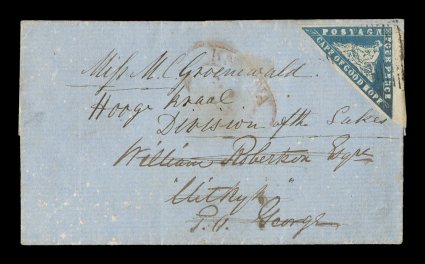 POSTAGE
FOUR PENCE
CAPE OF GOOD HOPE
Miss M. C. Groenewald.
Hooge Kraal
Division of the Lakes
William Robertson Esqre
"Uitkyk"
P.O. George